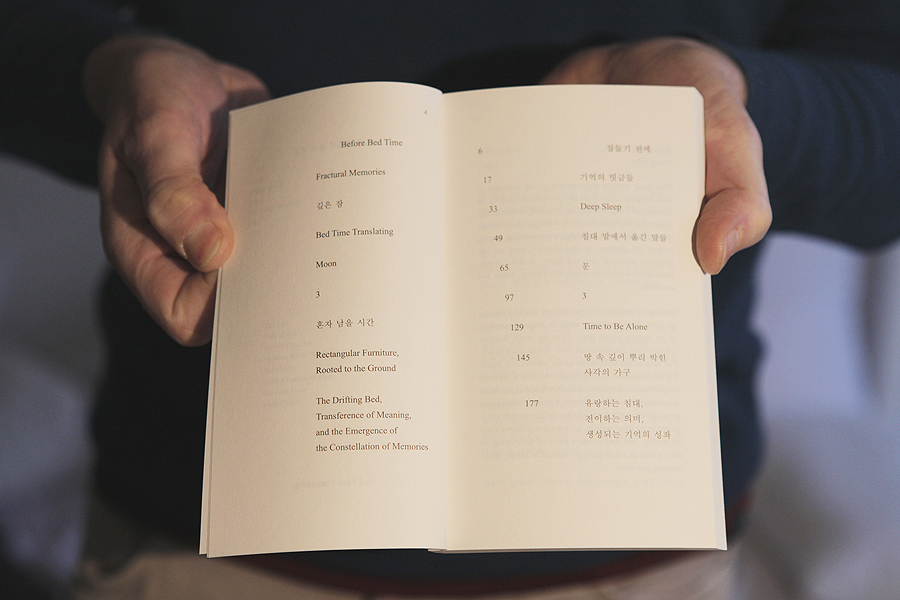 4
Before Bed Time
Fractural Memories
깊은 잠
Bed Time Translating
Moon
3
혼자 남을 시간
Rectangular Furniture,
Rooted to the Ground
The Drifting Bed,
Transference of Meaning,
and the Emergence of
the Constellation of Memories
6 잠들기 전에
17 기억의
33 Deep Sleep
49 침대 맡에서 옮긴 말들
65 문
97 3
129 Time to Be Alone
145 땅 속 깊이 뿌리 박힌
사각의 가구
177 유랑하는 침대,
전이하는 의미,
생성되는 기억의 성좌